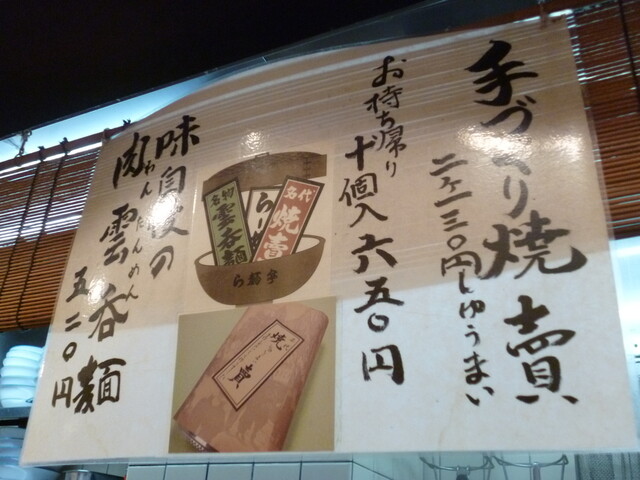 手づくり焼賣
二ケ一三〇円しゅうまい
お持ち帰り
十個入六五〇円
味自慢の
肉雲呑麺
わんたんめん
五二〇円
名物
雲呑麺
らーめん
名代
焼賣
焼賣